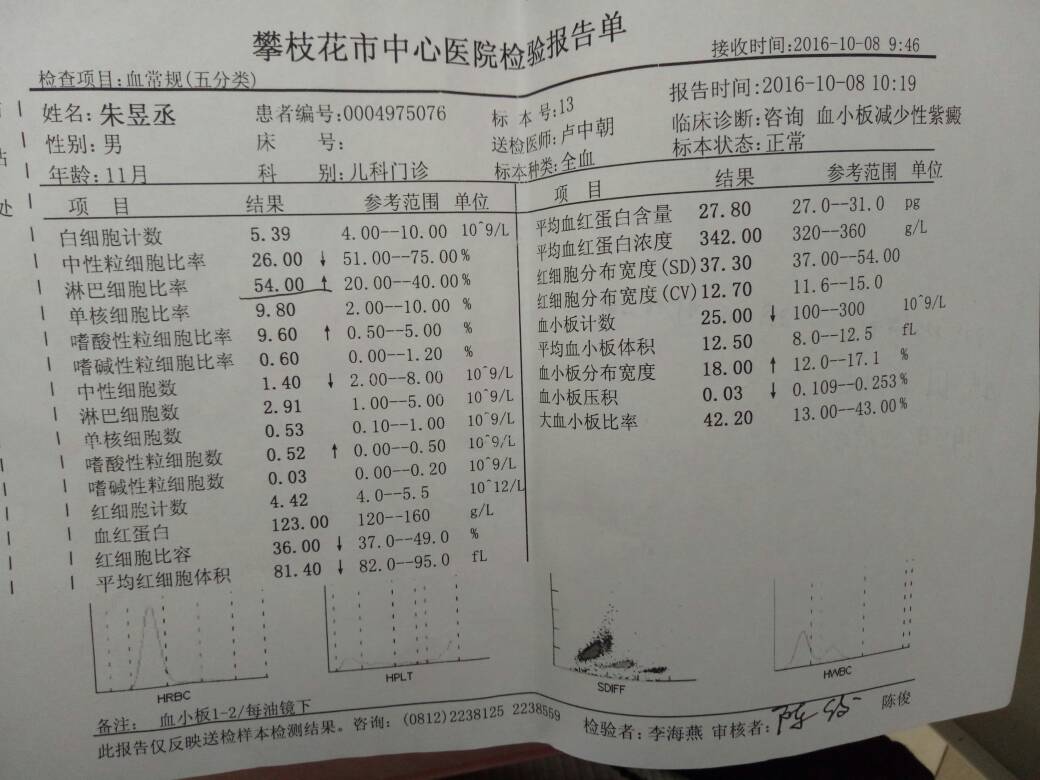 攀枝花市中心医院检验报告单
接收时间:2016-10-08 9:46
检查项目:血常规(五分类)
报告时间:2016-10-08 10:19
姓名:朱昱丞 患者编号:0004975076 标 本 号:13
临床诊断:咨询 血小板减少性紫癜
性别:男 床 号: 送检医师:卢中朝
标本状态:正常
年龄:11月 科 别:儿科门诊 标本种类:全血
项 目 结果 参考范围 单位
白细胞计数 5.39 4.00--10.00 10^9/L
中性粒细胞比率 26.00 ↓ 51.00--75.00 %
淋巴细胞比率 54.00 ↑ 20.00--40.00 %
单核细胞比率 9.80 2.00--10.00 %
嗜酸性粒细胞比率 9.60 ↑ 0.50--5.00 %
嗜碱性粒细胞比率 0.60 0.00--1.20 %
中性细胞数 1.40 ↓ 2.00--8.00 10^9/L
淋巴细胞数 2.91 1.00--5.00 10^9/L
单核细胞数 0.53 0.10--1.00 10^9/L
嗜酸性粒细胞数 0.52 ↑ 0.00--0.50 10^9/L
嗜碱性粒细胞数 0.03 0.00--0.20 10^9/L
红细胞计数 4.42 4.0--5.5 10^12/L
血红蛋白 123.00 120--160 g/L
红细胞比容 36.00 ↓ 37.0--49.0 %
平均红细胞体积 81.40 ↓ 82.0--95.0 fL
项 目 结果 参考范围 单位
平均血红蛋白含量 27.80 27.0--31.0 pg
平均血红蛋白浓度 342.00 320--360 g/L
红细胞分布宽度(SD) 37.30 37.00--54.00
红细胞分布宽度(CV) 12.70 11.6--15.0
血小板计数 25.00 ↓ 100--300 10^9/L
平均血小板体积 12.50 8.0--12.5 fL
血小板分布宽度 18.00 ↑ 12.0--17.1 %
血小板压积 0.03 ↓ 0.109--0.253 %
大血小板比率 42.20 13.00--43.00 %
HRBC
HPLT
SDIFF
HWBC
备注: 血小板1-2/每油镜下
此报告仅反映送检样本检测结果。咨询: (0812)2238125 2238559 检验者:李海燕 审核者: 陈俊